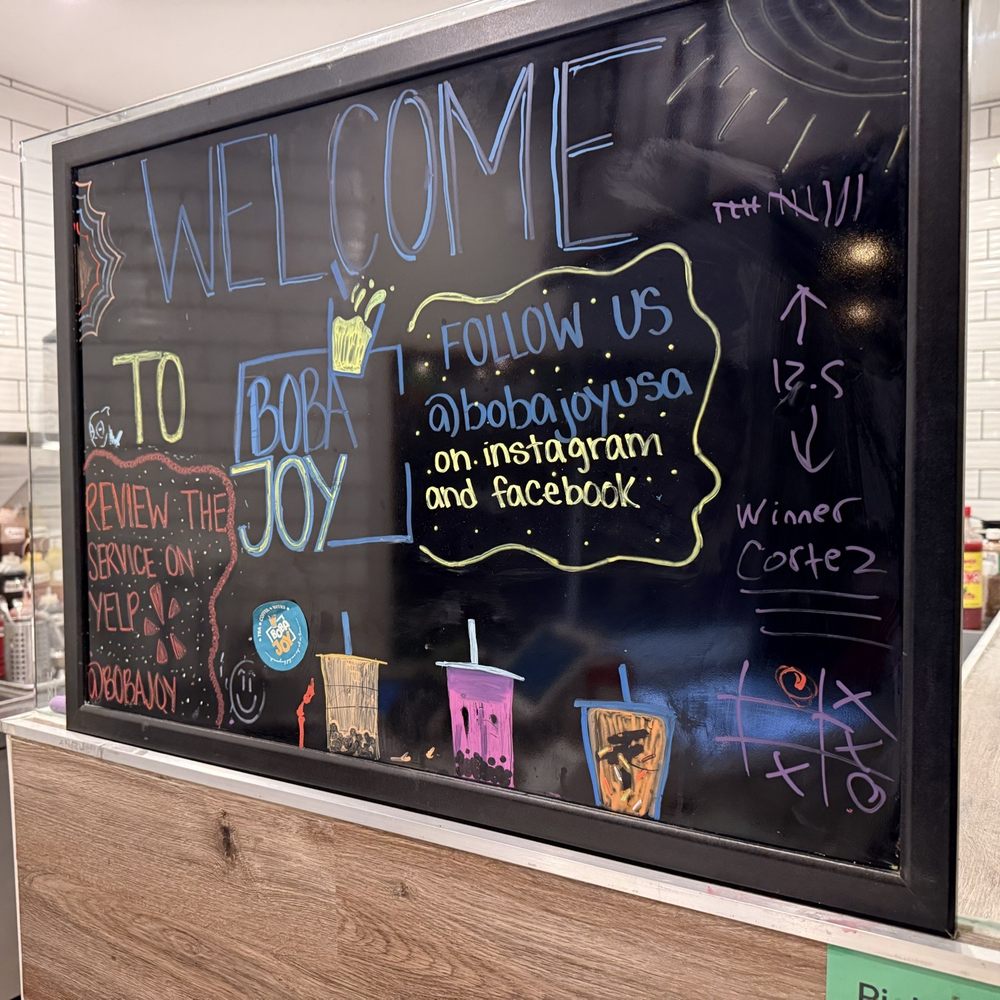 WELCOME
TO
BOBA
JOY
FOLLOW US
@bobajoyusa
on instagram
and facebook
REVIEW THE
SERVICE ON
YELP
@BOBAJOY
BOBA
JOY
12.5
Winner
Cortez
X
X
O